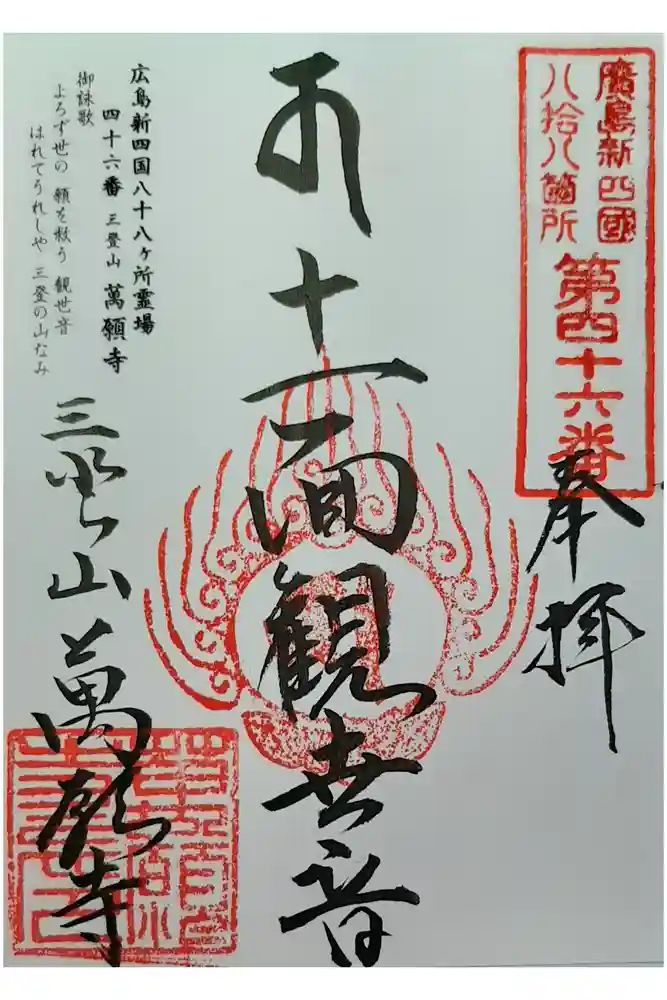 廣島新四國
八拾八箇所
第四十六番
奉拝
十一面観世音
広島新四国八十八ヶ所霊場
四十六番 三登山 萬願寺
御詠歌
よろず世の 願を救う 観世音
はれてうれしや 三登の山なみ
三登山 萬願寺